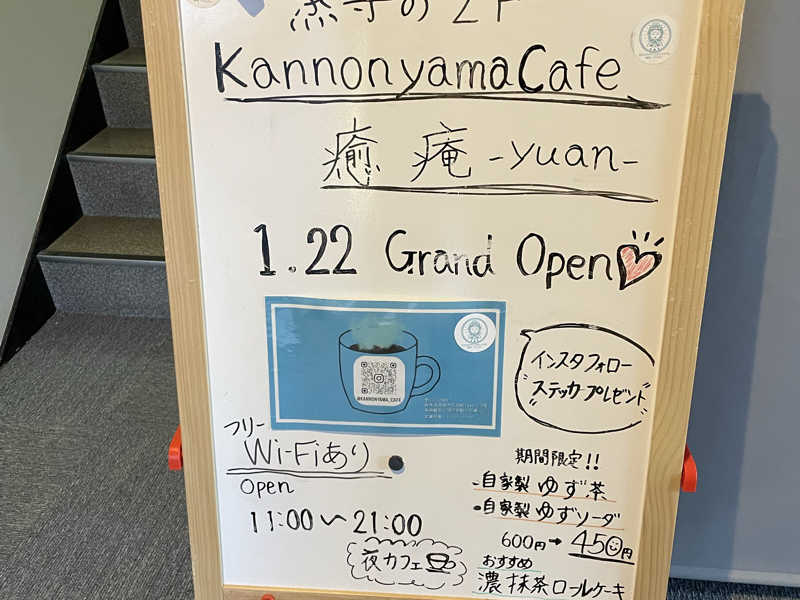 の2F
KannonyamaCafe
癒庵 -yuan-
1.22 Grand Open
@KANNONYAMA_CAFE
インスタフォロー
ステッカープレゼント
フリー
Wi-Fiあり
Open
11:00〜21:00
夜カフェ
期間限定!!
・自家製ゆず茶
・自家製ゆずソーダ
600円→450円
おすすめ
濃抹茶ロールケーキ